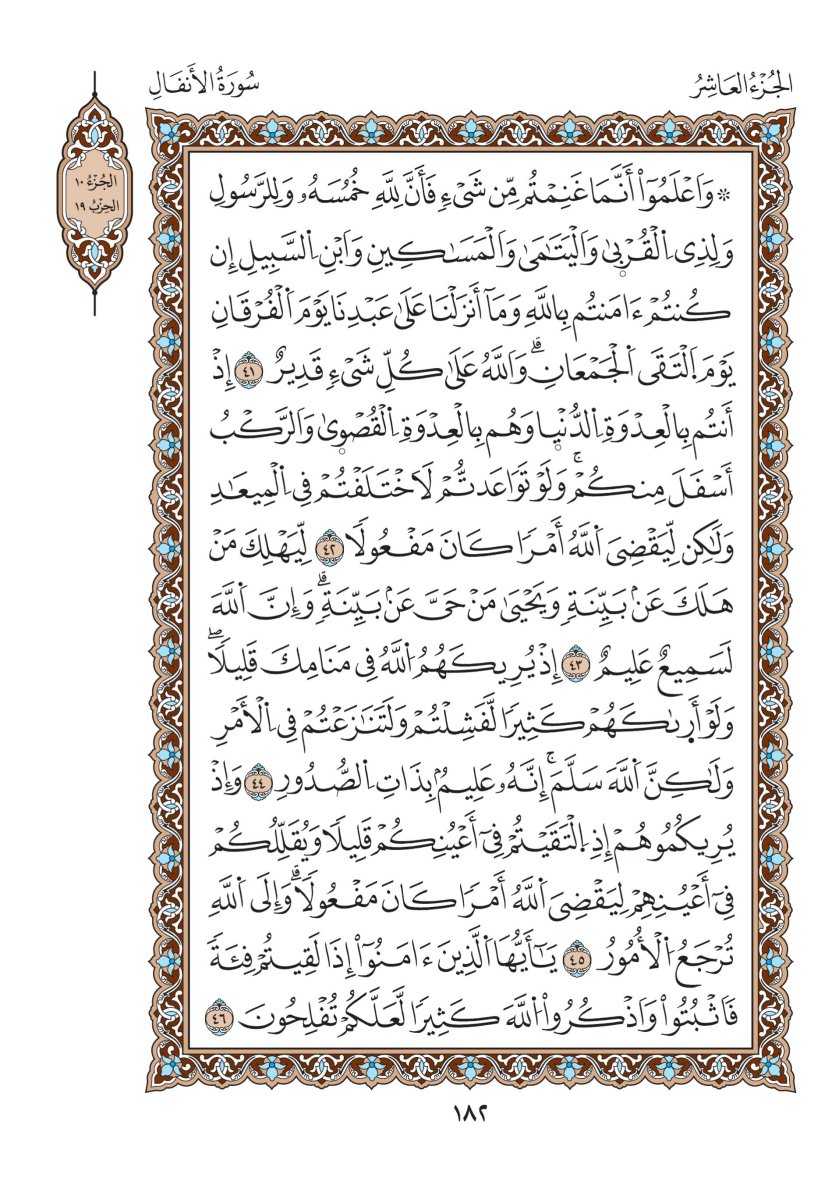 الجُزْءُ العَاشِرُ
سُورَةُ الأَنفَالِ
الجُزْءُ ١٠
الحِزْبُ ١٩
۞ وَاَعْلَمُوٓاْ أَنَّمَا غَنِمْتُم مِّن شَيْءٍ فَأَنَّ لِلَّهِ خُمُسَهُۥ وَلِلرَّسُولِ
وَلِذِي اِ۬لْقُرْب۪ىٰ وَالْيَتَٰمَىٰ وَالْمَسَٰكِينِ وَابْنِ اِ۬لسَّبِيلِ إِن
كُنتُمْ ءَامَنتُم بِاللَّهِ وَمَآ أَنزَلْنَا عَلَىٰ عَبْدِنَا يَوْمَ اَ۬لْفُرْقَانِ
يَوْمَ اَ۬لْتَقَى اَ۬لْجَمْعَانِۗ وَاللَّهُ عَلَىٰ كُلِّ شَيْءٍ قَدِيرٌ ٤١ إِذْ
أَنتُم بِالْعِدْوَةِ اِ۬لدُّنْي۪ا وَهُم بِالْعِدْوَةِ اِ۬لْقُصْو۪ىٰ وَالرَّكْبُ
أَسْفَلَ مِنكُمْۚ وَلَوْ تَوَاعَدتُّمْ لَاخْتَلَفْتُمْ فِي اِ۬لْمِيعَٰدِ
وَلَٰكِن لِّيَقْضِيَ اَ۬للَّهُ أَمْرًا كَانَ مَفْعُولًا ٤٢ لِّيَهْلِكَ مَنْ
هَلَكَ عَنۢ بَيِّنَةٍ وَيَحْيَىٰ مَنْ حَيَّ عَنۢ بَيِّنَةٍۗ وَإِنَّ اَ۬للَّهَ
لَسَمِيعٌ عَلِيمٌ ٤٣ إِذْ يُرِيكَهُمُ اُ۬للَّهُ فِي مَنَامِكَ قَلِيلًاۖ
وَلَوْ أَر۪ىٰكَهُمْ كَثِيرًا لَّفَشِلْتُمْ وَلَتَنَٰزَعْتُمْ فِي اِ۬لْأَمْرِ
وَلَٰكِنَّ اَ۬للَّهَ سَلَّمَۚ إِنَّهُۥ عَلِيمُۢ بِذَاتِ اِ۬لصُّدُورِ ٤٤ وَإِذْ
يُرِيكُمُوهُمْ إِذِ اِ۬لْتَقَيْتُمْ فِيٓ أَعْيُنِكُمْ قَلِيلًا وَيُقَلِّلُكُمْ
فِيٓ أَعْيُنِهِمْ لِيَقْضِيَ اَ۬للَّهُ أَمْرًا كَانَ مَفْعُولًاۗ وَإِلَى اَ۬للَّهِ
تُرْجَعُ اُ۬لْأُمُورُ ٤٥ يَٰٓأَيُّهَا اَ۬لَّذِينَ ءَامَنُوٓاْ إِذَا لَقِيتُمْ فِئَةً
فَاثْبُتُواْ وَاذْكُرُواْ اُ۬للَّهَ كَثِيرًا لَّعَلَّكُمْ تُفْلِحُونَ ٤٦
١٨٢